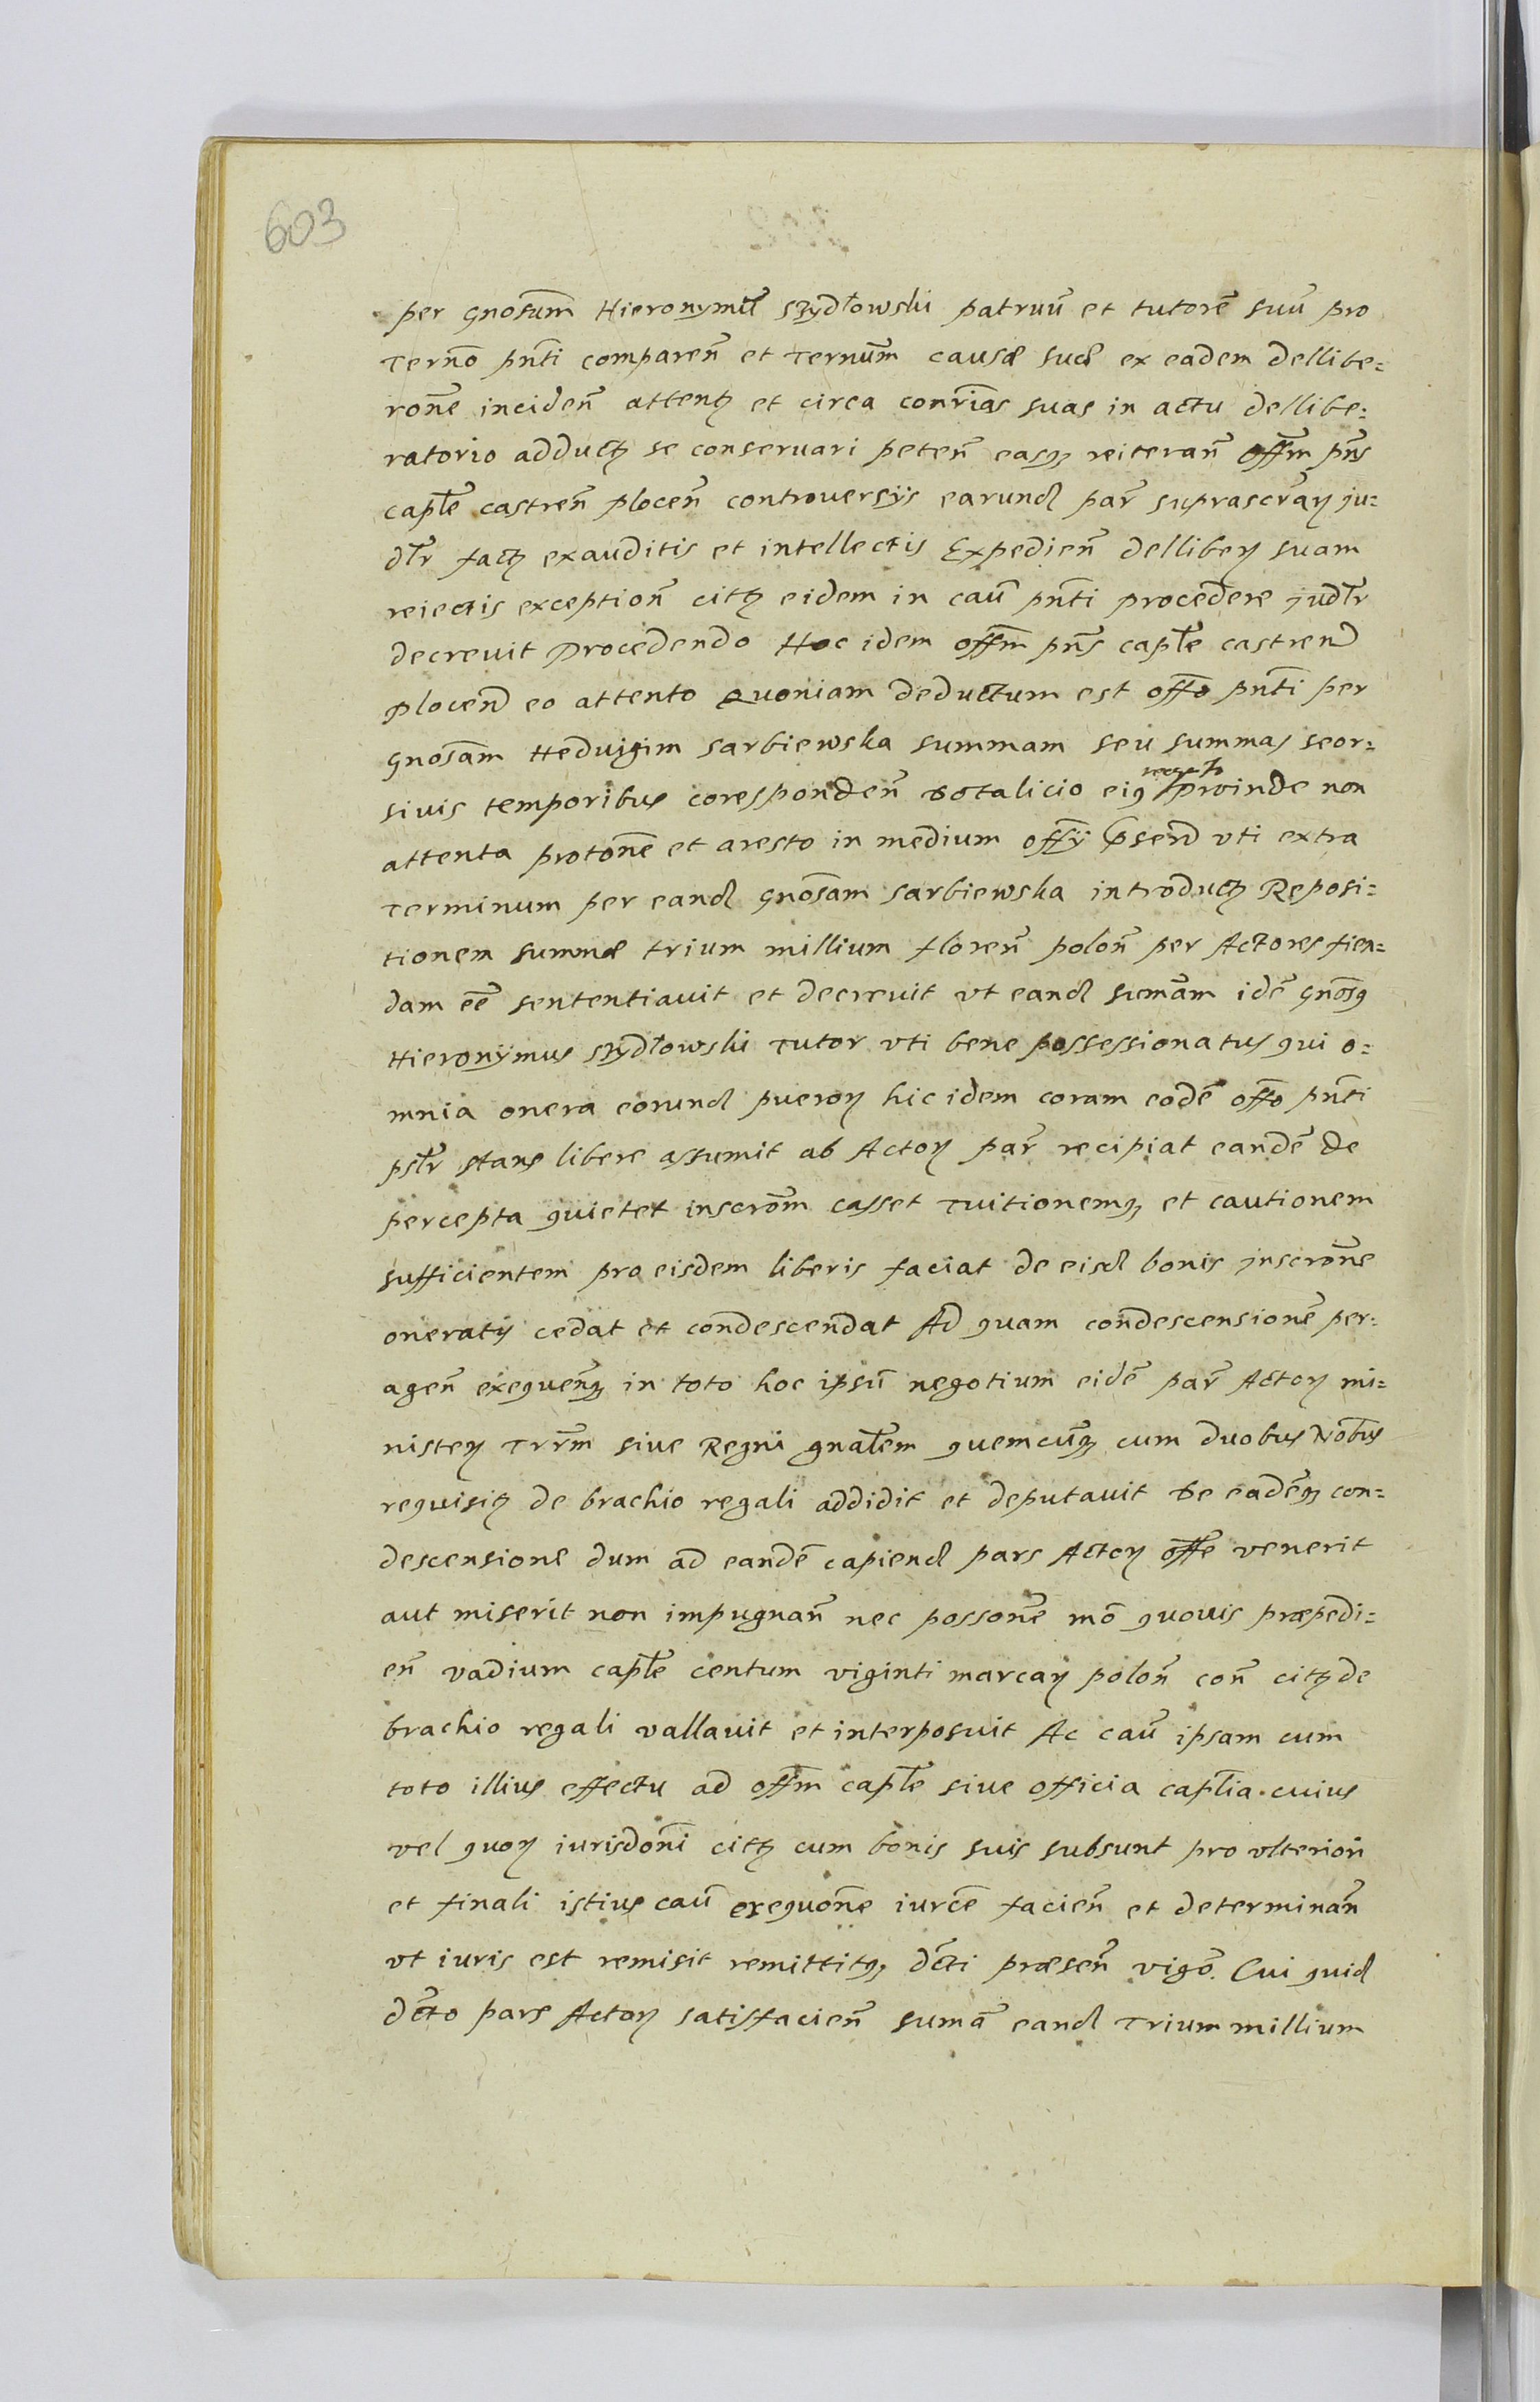 603
per gnosum̃ Hieronymũ Szydłowski patruũ et tutorẽ suũ pro
Terño pñti compareñ et Ternũm causæ suæ ex eadem dellibe-
roñe incideñ attentꝫ et circa conr̃ias suas in actu dellibe-
ratorio adductꝫ se conseruari peteñ easqꝫ reiterañ offm̃ pñs
caplẽ castreñ ploceñ controuersijs earundꝭ par̃ suprascrãꝝ ju-
dlr̃ factꝫ exauditis et intellectis Expedieñ delliberꝝ suam
reiectis exceptioñ citꝫ eidem in caũ pñti procedere judlr̃
decreuit Procedendo Hoc idem offm̃ pñs caplẽ castreñ
Ploceñ eo attento Quoniam deductum est offo̅ pñti per
gnosam̃ Hedvigim Sarbiewska summam seu summas seor-
siuis temporibus coresspondeñ dotalicio eiꝰ Proinde non
attenta protoñe et aresto in medium offij̃ p̃señ vti extra
terminum per eandꝭ gnosam̃ Sarbiewska introductꝫ Reposi-
tionem summæ trium millium floreñ poloñ per Actores fien-
dam eẽ sententiauit et decreuit vt eandꝭ sumãm idẽ gnõsꝰ
Hieronÿmus Szydłowski Tutor vti bene possessionatus qui o-
mnia onera eorundꝭ pueroꝝ hic idem coram eodẽ offo̅ pñti
pslr̃ stans libere assumit ab Actoꝝ par̃ recipiat eandẽ de
percepta quietet inscrõm casset Tuitionemqꝫ et cautionem
sufficientem pro eisdem liberis faciat de eisdꝭ bonis jnscroñe
oneratis cedat et condescendat Ad quam condescensionẽ per-
ageñ exequeñqꝫ in toto hoc ipsũ negotium eidẽ par̃ Actoꝝ mi-
nisterꝝ Trr̃m siue Regni gnalẽm quemcũqꝫ cum duobus Nobus̃
requisitꝫ de brachio regali addidit et deputauit De eadẽqꝫ con-
descensione dum ad eandẽ capiendꝭ pars Actoꝝ offẽ venerit
aut miserit non impugnañ nec possoñe mõ quouis præpedi-
eñ vadium caplẽ centum viginti marcaꝝ poloñ coñ citꝫ de
brachio regali vallauit et interposuit Ac caũ ipsam cum
toto illius effectu ad offm̃ caplẽ siue officia caplĩa cuius
vel quoꝝ iurisdoñi citꝫ cum bonis suis subsunt pro vlteriori
et finali istius caũ exequoñe iurcẽ facieñ et determinañ
vt iuris est remisit remittitqꝫ dcti̅ præseñ vigõ. Cui quidꝭ
dcto̅ pars Actoꝝ satisfacieñ sumã eandꝭ Trium millium